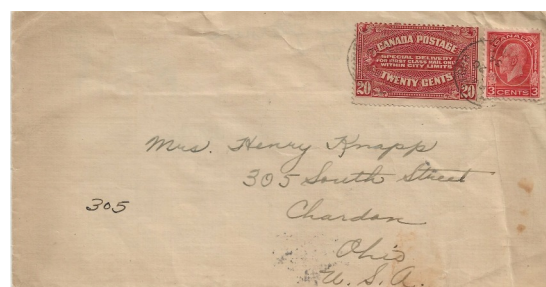 CANADA POSTAGE
SPECIAL DELIVERY
FOR FIRST CLASS MAIL ONLY
WITHIN CITY LIMITS
TWENTY CENTS
20 20
CANADA
3 CENTS 3
Mrs. Henry Knapp
305 South Street
305
Chardon
Ohio
U.S.A.